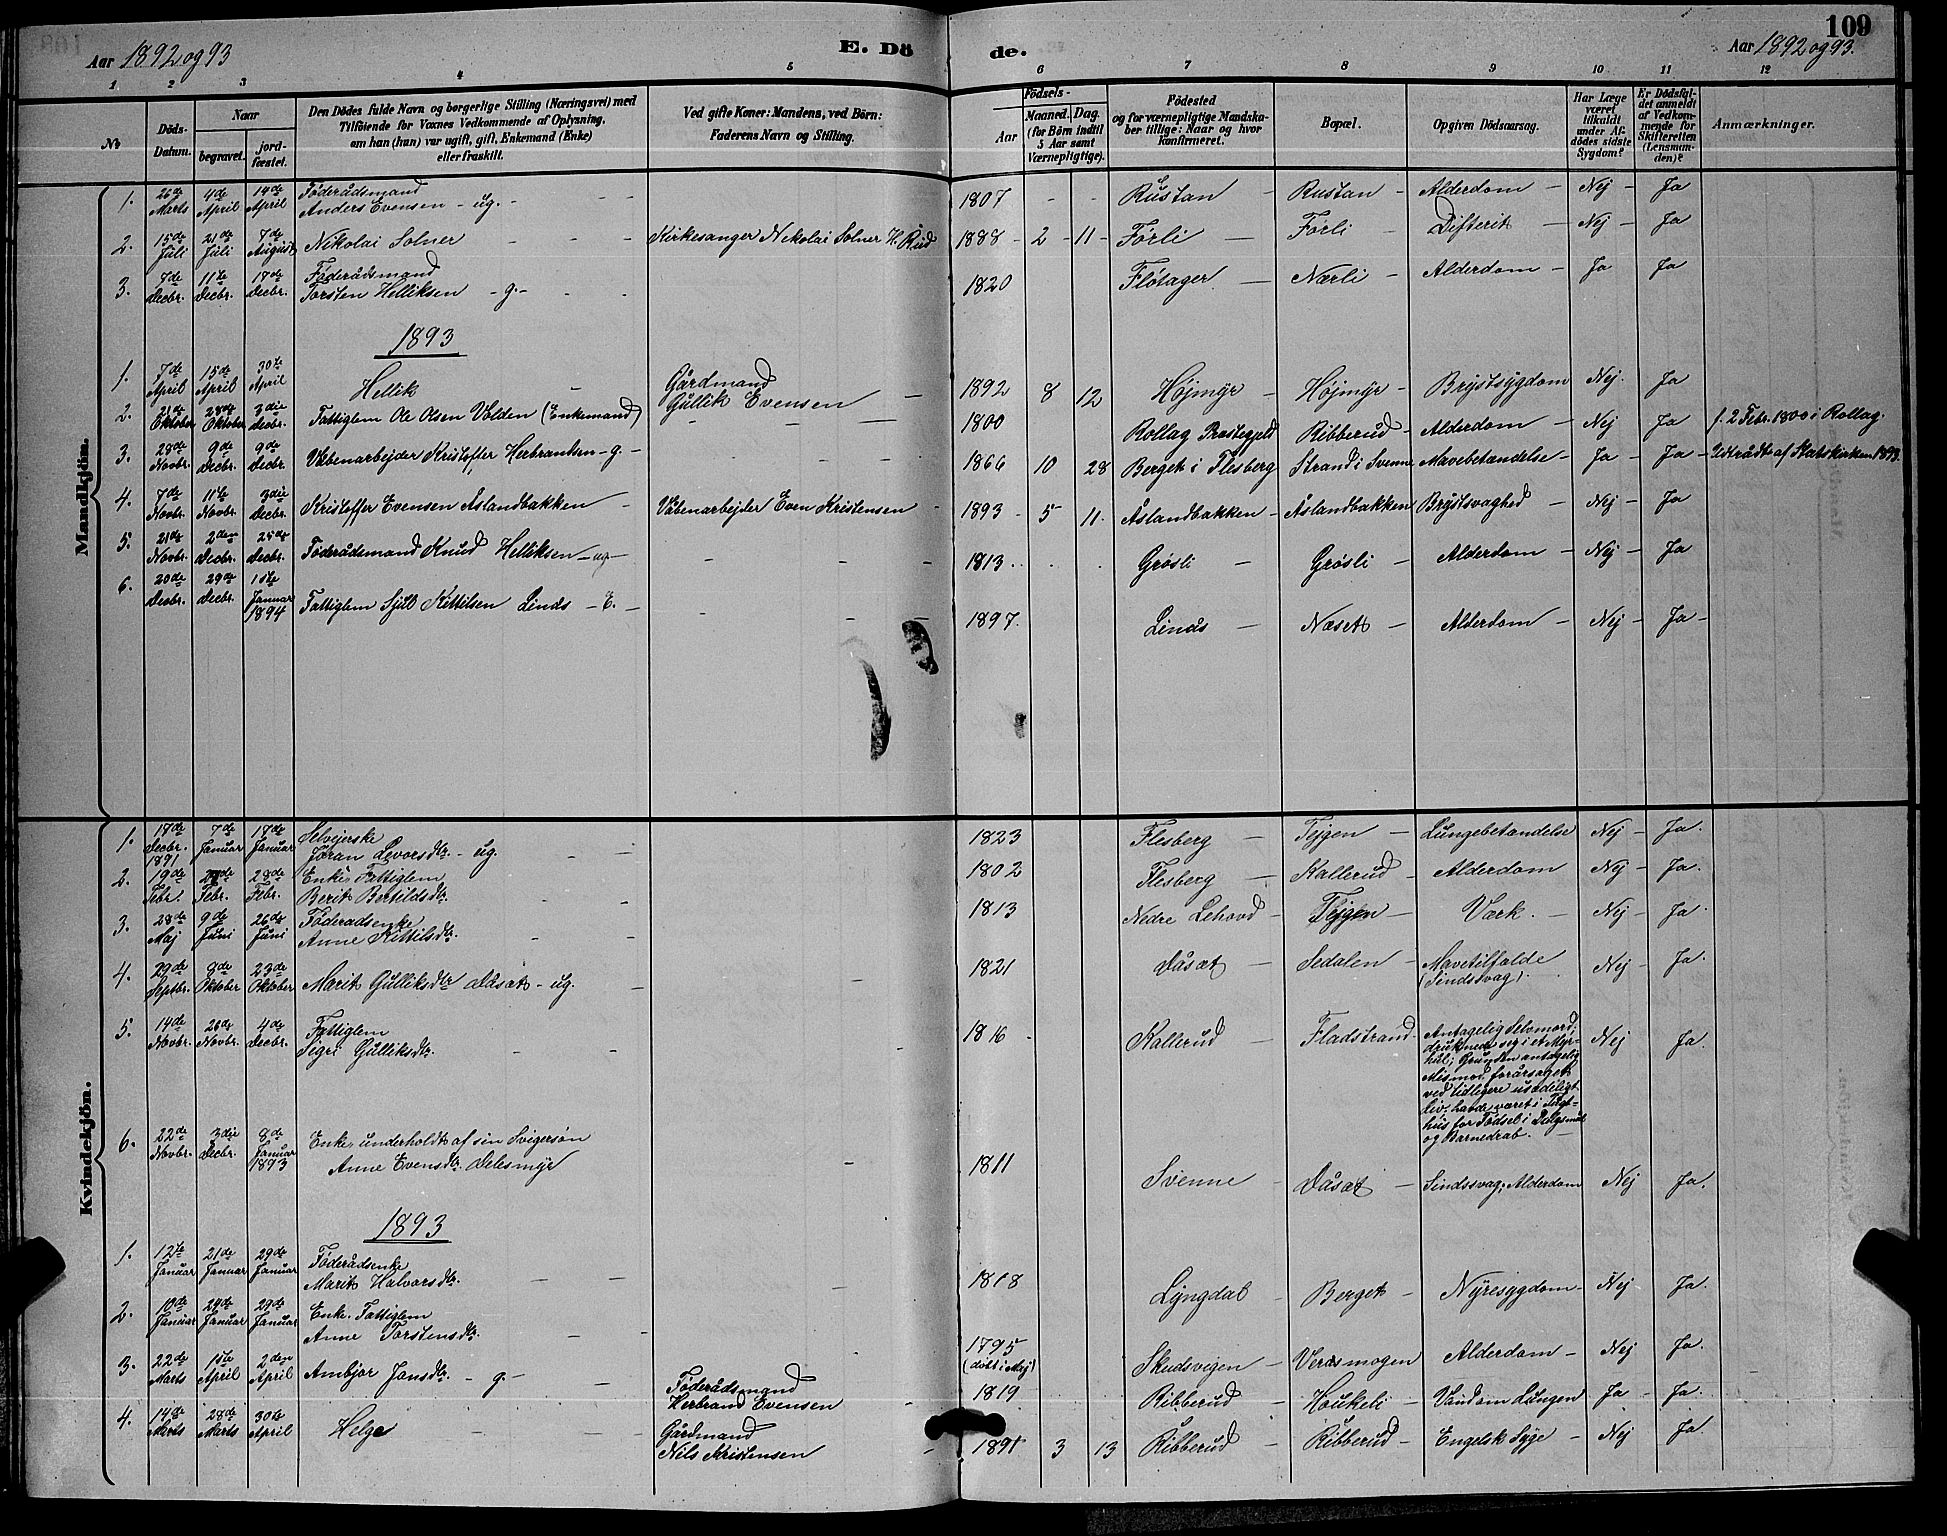 109
Aar 1892 og 93
E. Dö
de.
Aar 1892 og 93.
1 2 3 4 5 6 7 8 9 10 11 12
No
Döds-Datum.
Naar
begravet.
jord-fæstet.
Den Dödes fulde Navn og borgerlige Stilling (Næringsvei) med
Tilföiende for Voxnes Vedkommende af Oplysning,
om han (hun) var ugift, gift, Enkemand (Enke)
eller fraskilt.
Ved gifte Koner: Mandens, ved Börn:
Faderens Navn og Stilling.
Födsels-
Aar
Maaned. Dag.
(for Börn indtil
5 Aar samt
Værnepligtige).
Födested
og for værnepligtige Mandska-
ber tillige: Naar og hvor
konfirmeret.
Bopæl.
Opgiven Dödsaarsag.
Har Læge
været
tilkaldt
under Af-
dödes sidste
Sygdom?
Er Dödsfal-
det anmeldt
af Vedkom-
mende for
Skifteretten
(Lensman-
den)?
Anmærkninger.
Mandkjön.
1. 26de Marts 4de April 19de April Föderådsmand Anders Evensen - ug. - 1807 - - Rustan - Rustan - Alderdom - Nej - Ja
2. 15de Juli 21de Juli 7de August Nikolai Solner - Kirkesanger Nikolai Solner H. Rud 1888 - 2 - 11 - Førli - Førli - Difterit - Nej - Ja
3. 7de Decbr. 11te Decbr. 17de Decbr. Føderådsmand Torsten Helliksen - g. - 1820 Fløtager - Nærli - Alderdom - Ja Ja
1893
1. 7de April 15de April 30te April Hellik - Gårdmand Gullik Evensen - 1892 8 12 Højmyr - Højmyr - Brystsygdom Nej. Ja
2. 21de Oktober 28de Oktober 3die Decbr. Fattiglem Ole Olsen Volden (Enkemand) - 1800 Rollag Prestegjeld Ribberud - Alderdom - Nej Ja f. 2 Febr. 1800 i Rollag.
3. 28de Novbr. 9de Decbr. 9de Decbr. Våbenarbejder Kristoffer Herbrandsen - g. - 1866 10 28 Berget i Flesberg Strand i Svenne Mavebetændelse - Ja - Ja - Udtrådt af Statskirken 1893.
4. 7de Novbr. 11te Novbr. 3die Decbr. Kristoffer Evensen Åslandbakken - Våbenarbejder Even Kristensen - 1893 - 5 - 11. Åslandbakken - Åslandbakken Brystsvaghed - Nej - Ja
5. 21de Novbr. 2den Decbr. 25de Decbr. Føderådsmand Knud Helliksen - ug - 1813 . . Grøsli - Grøsli - Alderdom - Nej - Ja
6. 20de Decbr. 29de Decbr. 1ste Januar 1894 Fattiglem Kittilsen Linds - E. - 1897. Linds - Næset - Alderdom - Nej - Ja -
Kvindekjön.
1. 18de Decbr. 1891 7de Januar 17de Januar Selvejerske Jøran Levorsdtr. - ug. - 1823 Flesberg - Tejgen - Lungebetændelse Nej - Ja.
2. 19de Febr. Febr. 28de Febr. Enke, Fattiglem Berit Bertildsdtr. - 1802 Flesberg - Kallerud - Alderdom Nej - Ja.
3. 28de Maj 9de Juni 26de Juni Føderadsenke Anne Kittilsdtr. - 1813 Nedre Lehovd - Tejgen - Værk. - Nej - Ja.
4. 29de Septbr. 8de Oktober 23de Oktober Marit Gulliksdtr Dåsæt - ug. - 1821 Dåsæt - Sedalen - Mavetilfælde (Sindssvag). Nej - Ja.
5. 14de Novbr. 26de Novbr. 4de Decbr. Fattiglem Sigri Gulliksdtr. - 1816 Kallerud - Fladstrand - Antagelig Selvmord;
druknede seg i et Myr-
hul; Grunden antagelig
Mismod forårsaget
ved tidligere usædeligt
liv; havde været i Tugt-
hus for Fødsel i Dulgsmål
og Barnedrab. - Nej Ja.
6. 22de Novbr. 3die Decbr. 8de Januar 1893 Enke, underholdt af sin Svigersøn Anne Evensdtr. Delesmyr - 1811 Svenne - Dåsæt - Sindssvag; Alderdom Nej Ja.
1893
1. 12te Januar 21de Januar 29de Januar Føderådsenke Marit Halvorsdtr. - 1818 Lyngdal - Berget - Nyresygdom - Nej - Ja.
2. 10de Januar 24de Januar 29de Januar Enke. Fattiglem Anne Torstensdtr. - 1795 (døbt i Mej) Skudevigen - Verdsmogen Alderdom - Nej Ja.
3. 22de Marts 1ste April 2den April Ambjør Jonsdtr. - g. - Føderådsmand Herbrand Evensen - 1819 Ribberud - Houkeli - Vand om Lungen Ja - Ja.
4. 14de Marts 28de Marts 30te April Helge - Gårdmand Nils Kristensen - 1891 3 13 Ribberud - Ribberud - Engelsk Syge - Nej Ja.